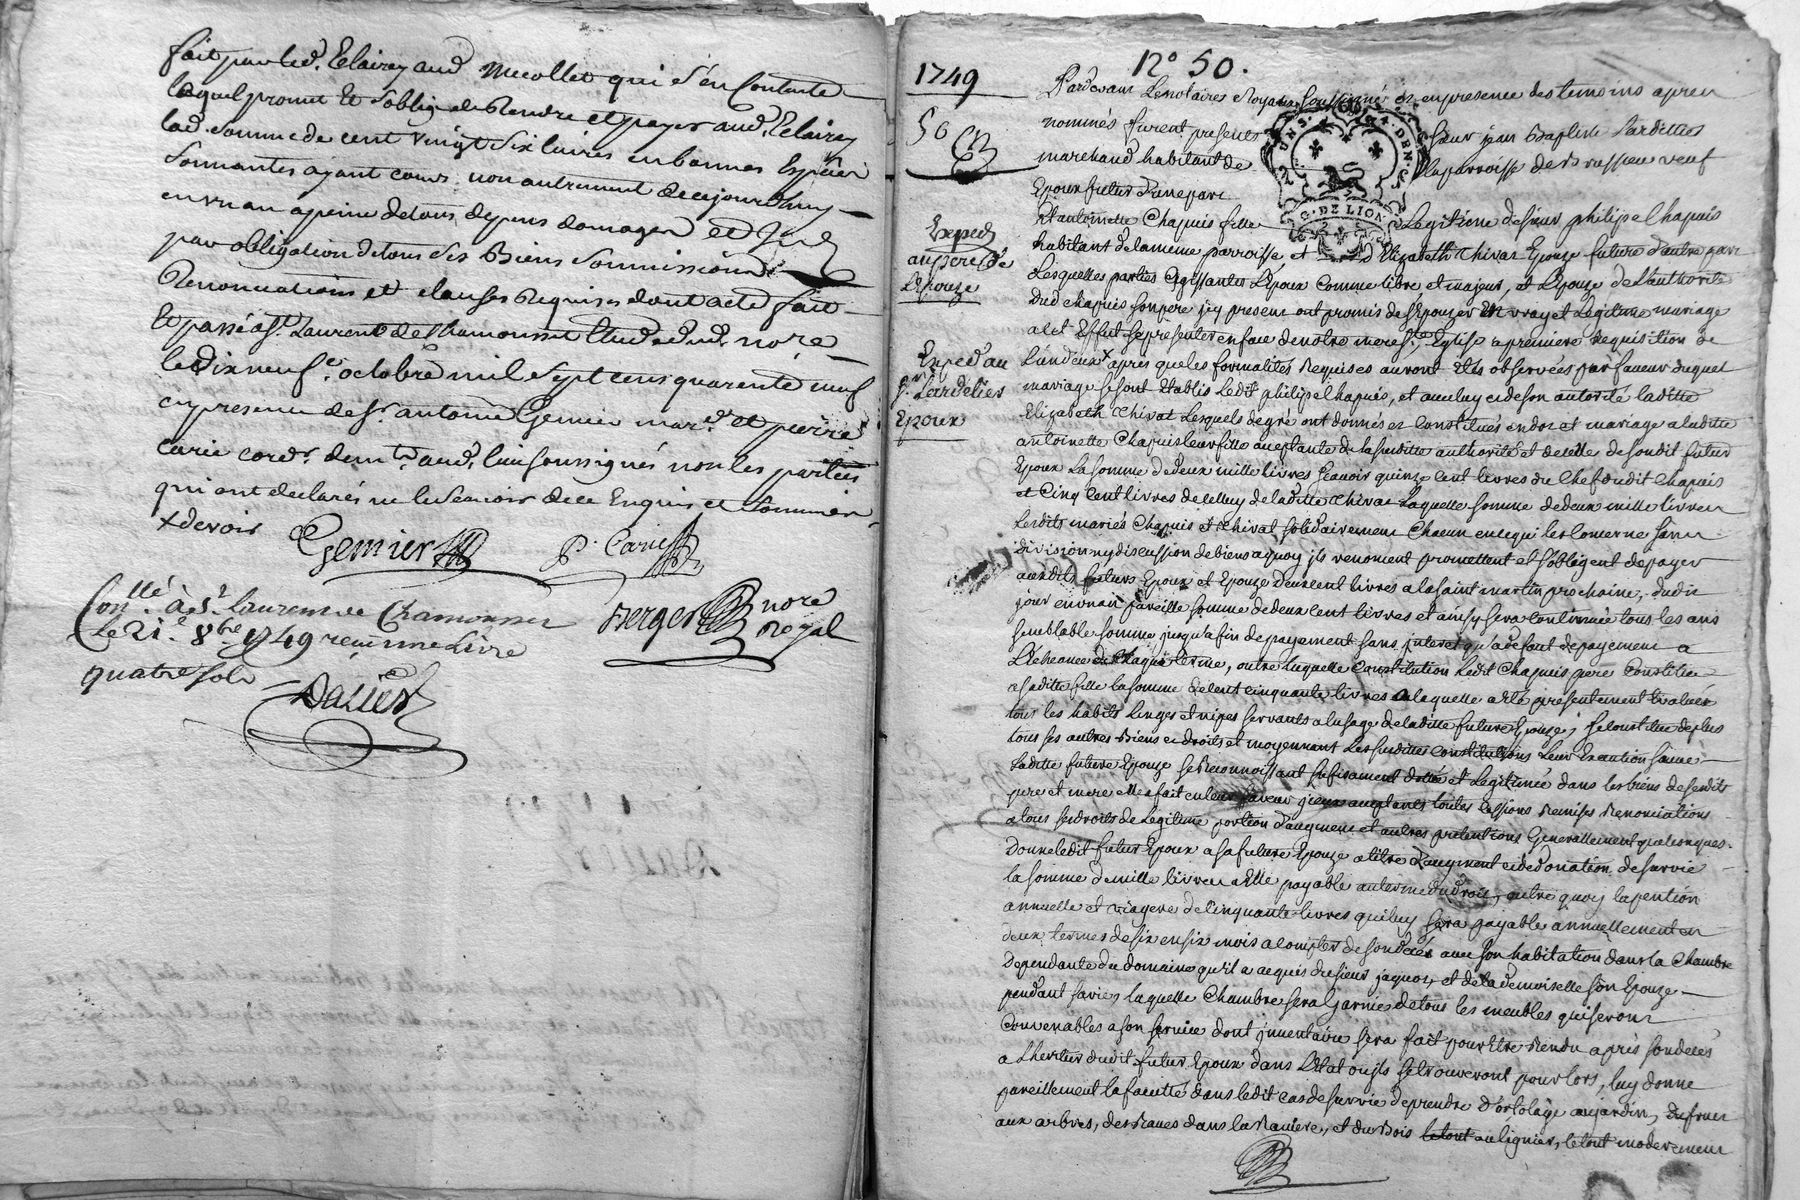 fait par led. Eclairey aud Micollet qui s'en Contente
lequel promet et s'oblige de Rendre et payer aud. Eclairey
lad. somme de cent vingt six livres en bonnes Espèces
sonnantes ayant cours non autrement de cejourdhuy
en un an a peine de tous depens domages et
par obligation de tous ses Biens soumissions
Renonciations et clauses Requises dont acte fait
et passé a St. Laurent de Chamousset Etude dud. no.re
le dix neuf e. octobre mil sept cens quarente neuf
en presence de Sr. antoine Gemier mar.d et pierre
Carié cord.r dem.t aud. lieu soussignés non les parties
qui ont declarés ne le scavoir de ce Enquis et sommés
+ devoir
Gemier P. Carié
Con.llé à St. Laurent de Chamousset
Le 21.e 8bre 1749 reçu une Livre
quatre sols
Berger no.re Royal
Dalier
1749
No 50.
50
Exped.
au pere de
L'Epouze
Exped. au
Sr. Lardellier
Epoux
Pardevant Le notaire Royal soussigné et en presence des temoins apres
nommés furent presents Sieur jean Baptiste Lardellier
marchand habitant de la parroisse de Brussieu veuf
Epoux futur d'une part
Et antoinette Chapuis fille Legitime de sieur philipe Chapuis
habitant de la meme parroisse et d'Elizabeth Chivat Epouze future d'autre part
Lesquelles parties agissantes L'Epoux comme libre et majeur, et L'Epouze de L'authorité
dud. Chapuis son pere icy present ont promis de s'Epouzer En vray et Legitime mariage
a cet Effet se presenter en face de notre mere ste. Eglise a premiere Requisition de
L'un d'eux + apres que les formalités Requises auront Etés observées par faveur duquel
mariage se sont Etablis Ledit philipe Chapuis, et avec luy et de son autorité laditte
Elizabeth Chivat Lesquels de gré ont donnés et Constitués en dot et mariage a laditte
antoinette Chapuis leur fille acceptante de la susditte authorité et de celle de son dit futur
Epoux La somme de deux mille livres scavoir quinze Cent livres du Chef dudit Chapuis
et Cinq Cent livres de celluy de laditte Chivat Laquelle somme de deux mille livres
Lesdits mariés Chapuis et Chivat solidairement Chacun en ce qui les concerne sans
division ny discussion de biens a quoy ils renoncent promettent et s'obligent de payer
auxdits futurs Epoux et Epouze deux cent livres a la saint martin prochaine, dudit
jour en un an pareille somme de deux cent livres et ainsy sera continué tous les ans
semblable somme jusqu'a fin de payement sans interet qu'a defaut de payement a
L'Echeance de Chaque terme, outre laquelle Constitution Ledit Chapuis pere Constitue
a saditte fille la somme de Cent cinquante livres a laquelle a Eté presentement Evalués
tous les habits linges et nipes servants a l'usage de laditte future Epouze; se constitue de plus
tous ses autres Biens et droits et moyennant Les susdittes constitutions Leur Execution suivie
Laditte future Epouze se Reconnoissant suffisament dottée et Legitimée dans les biens de sesdits
pere et mere elle a fait en leur faveur iceux acceptants toutes Cessions Remises Renonciations
a tous ses droits de Legitime portion d'augment et autres pretentions Generallement quelconques.
Donne ledit futur Epoux a sa future Epouze a titre d'augment et de donation de survie
la somme de mille livres a Elle payable au terme du droit, outre quoy la pention
annuelle et viagere de Cinquante livres qui luy sera payable annuellement en
deux termes de six en six mois a compter de son decès avec son habitation dans la Chambre
Dependante du domaine qu'il a acquis du sieur jaquos, et de la demoiselle son Epouze
pendant sa vie, laquelle Chambre sera Garnie de tous les meubles qui seront
Convenables a son service dont inventaire sera fait pour Etre Rendu après son decès
a L'heritier dudit futur Epoux dans L'Etat ou ils se trouveront pour lors, luy donne
pareillement la faculté dans ledit cas de survie de prendre d'ortolage au jardin, du fruit
aux arbres, des Raves dans la Raviere, et du Bois au lignier, le tout moderement